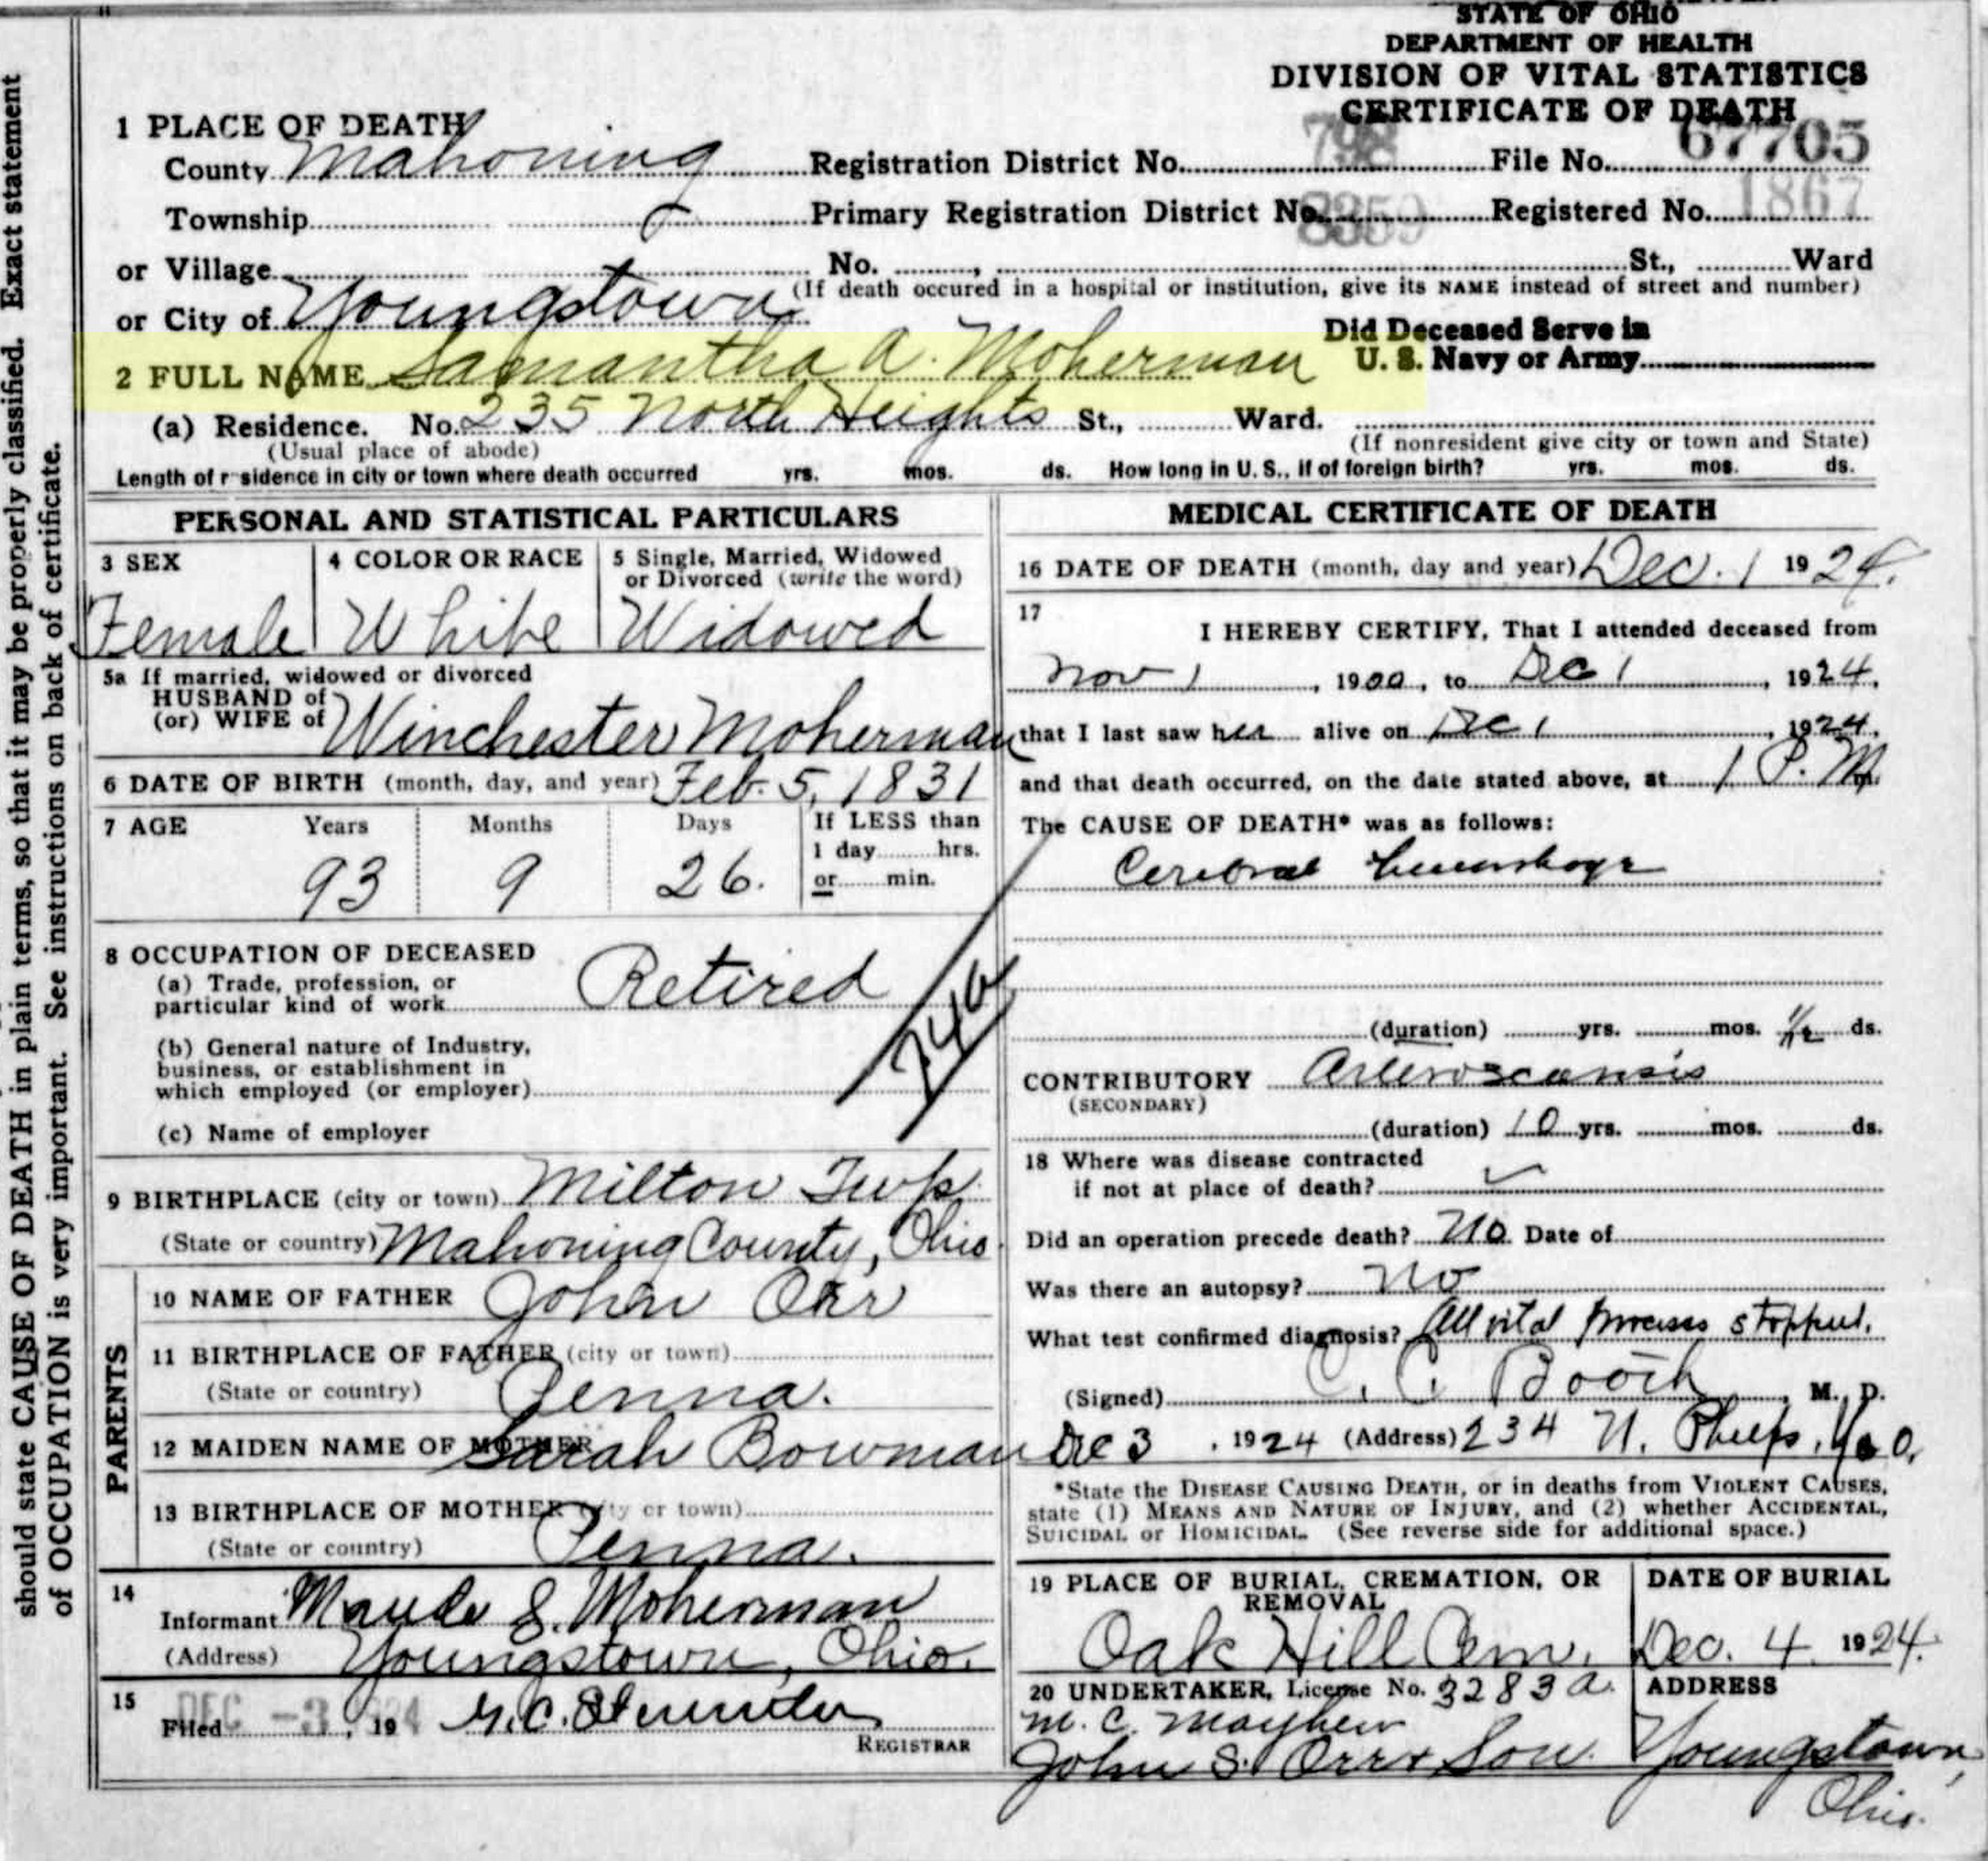 STATE OF OHIO
DEPARTMENT OF HEALTH
DIVISION OF VITAL STATISTICS
CERTIFICATE OF DEATH
1 PLACE OF DEATH
County Mahoning Registration District No. 798 File No. 67705
Township Primary Registration District No. 8359 Registered No. 1867
or Village No. , St., Ward
(If death occured in a hospital or institution, give its NAME instead of street and number)
or City of Youngstown
Did Deceased Serve in
U. S. Navy or Army
2 FULL NAME Samantha A. Moherman
(a) Residence. No. 235 North Heights St., Ward.
(Usual place of abode) (If nonresident give city or town and State)
Length of r sidence in city or town where death occurred yrs. mos. ds. How long in U. S., if of foreign birth? yrs. mos. ds.
PERSONAL AND STATISTICAL PARTICULARS
3 SEX 4 COLOR OR RACE 5 Single, Married, Widowed
or Divorced (write the word)
Female White Widowed
5a If married, widowed or divorced
HUSBAND of
(or) WIFE of Winchester Moherman
6 DATE OF BIRTH (month, day, and year) Feb. 5, 1831
7 AGE Years Months Days If LESS than
1 day hrs.
or min.
93 9 26.
8 OCCUPATION OF DECEASED
(a) Trade, profession, or
particular kind of work Retired
(b) General nature of Industry,
business, or establishment in
which employed (or employer)
(c) Name of employer
9 BIRTHPLACE (city or town) Milton Twp.
(State or country) Mahoning County, Ohio.
PARENTS
10 NAME OF FATHER John Orr
11 BIRTHPLACE OF FATHER (city or town)
(State or country) Penna.
12 MAIDEN NAME OF MOTHER Sarah Bowman
13 BIRTHPLACE OF MOTHER (city or town)
(State or country) Penna.
14
Informant Maude S. Moherman
(Address) Youngstown, Ohio.
15
Filed DEC -3 , 1924
REGISTRAR
MEDICAL CERTIFICATE OF DEATH
16 DATE OF DEATH (month, day and year) Dec. 1 1924.
17
I HEREBY CERTIFY, That I attended deceased from
Nov 1 , 1900, to Dec 1 , 1924,
that I last saw her alive on Dec 1 , 1924,
and that death occurred, on the date stated above, at 1 P. M m.
The CAUSE OF DEATH* was as follows:
Cerebral hemorrhage
(duration) yrs. mos. 1/2 ds.
CONTRIBUTORY
(SECONDARY)
(duration) 10 yrs. mos. ds.
18 Where was disease contracted
if not at place of death?
Did an operation precede death? No Date of
Was there an autopsy? No
What test confirmed diagnosis? All vital processes stopped.
(Signed) C. C. Booth , M. D.
Dec 3 , 1924 (Address) 234 N. Phelps, Y. O.
*State the DISEASE CAUSING DEATH, or in deaths from VIOLENT CAUSES,
state (1) MEANS AND NATURE OF INJURY, and (2) whether ACCIDENTAL,
SUICIDAL or HOMICIDAL. (See reverse side for additional space.)
19 PLACE OF BURIAL, CREMATION, OR
REMOVAL
DATE OF BURIAL
Oak Hill Cem. Dec. 4 1924.
20 UNDERTAKER, License No. 3283 a. ADDRESS
M. C. Mayhew
John S. Orr + Son. Youngstown,
Ohio.
should state CAUSE OF DEATH in plain terms, so that it may be properly classified. Exact statement
of OCCUPATION is very important. See instructions on back of certificate.